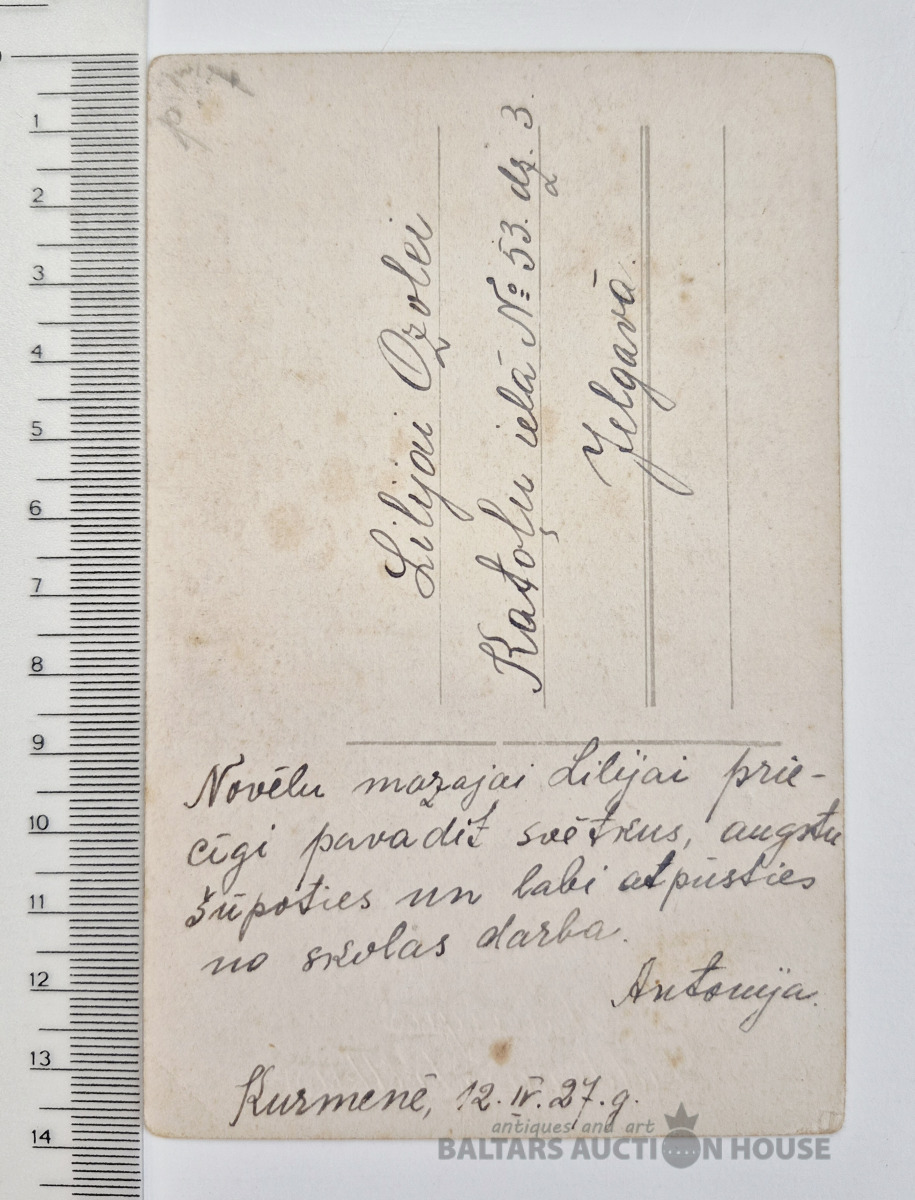 Lilijai Ozolei
Katoļu ielā № 53. dz. 3.
Jelgavā.
Novēlu mazajai Lilijai prie-
cīgi pavadīt svētkus, augstu
šūpoties un labi atpūsties
no skolas darba.
Antonija.
Kurmenē, 12. IV. 27. g.
antiques and art
BALTARS AUCTION HOUSE
1
2
3
4
5
6
7
8
9
10
11
12
13
14